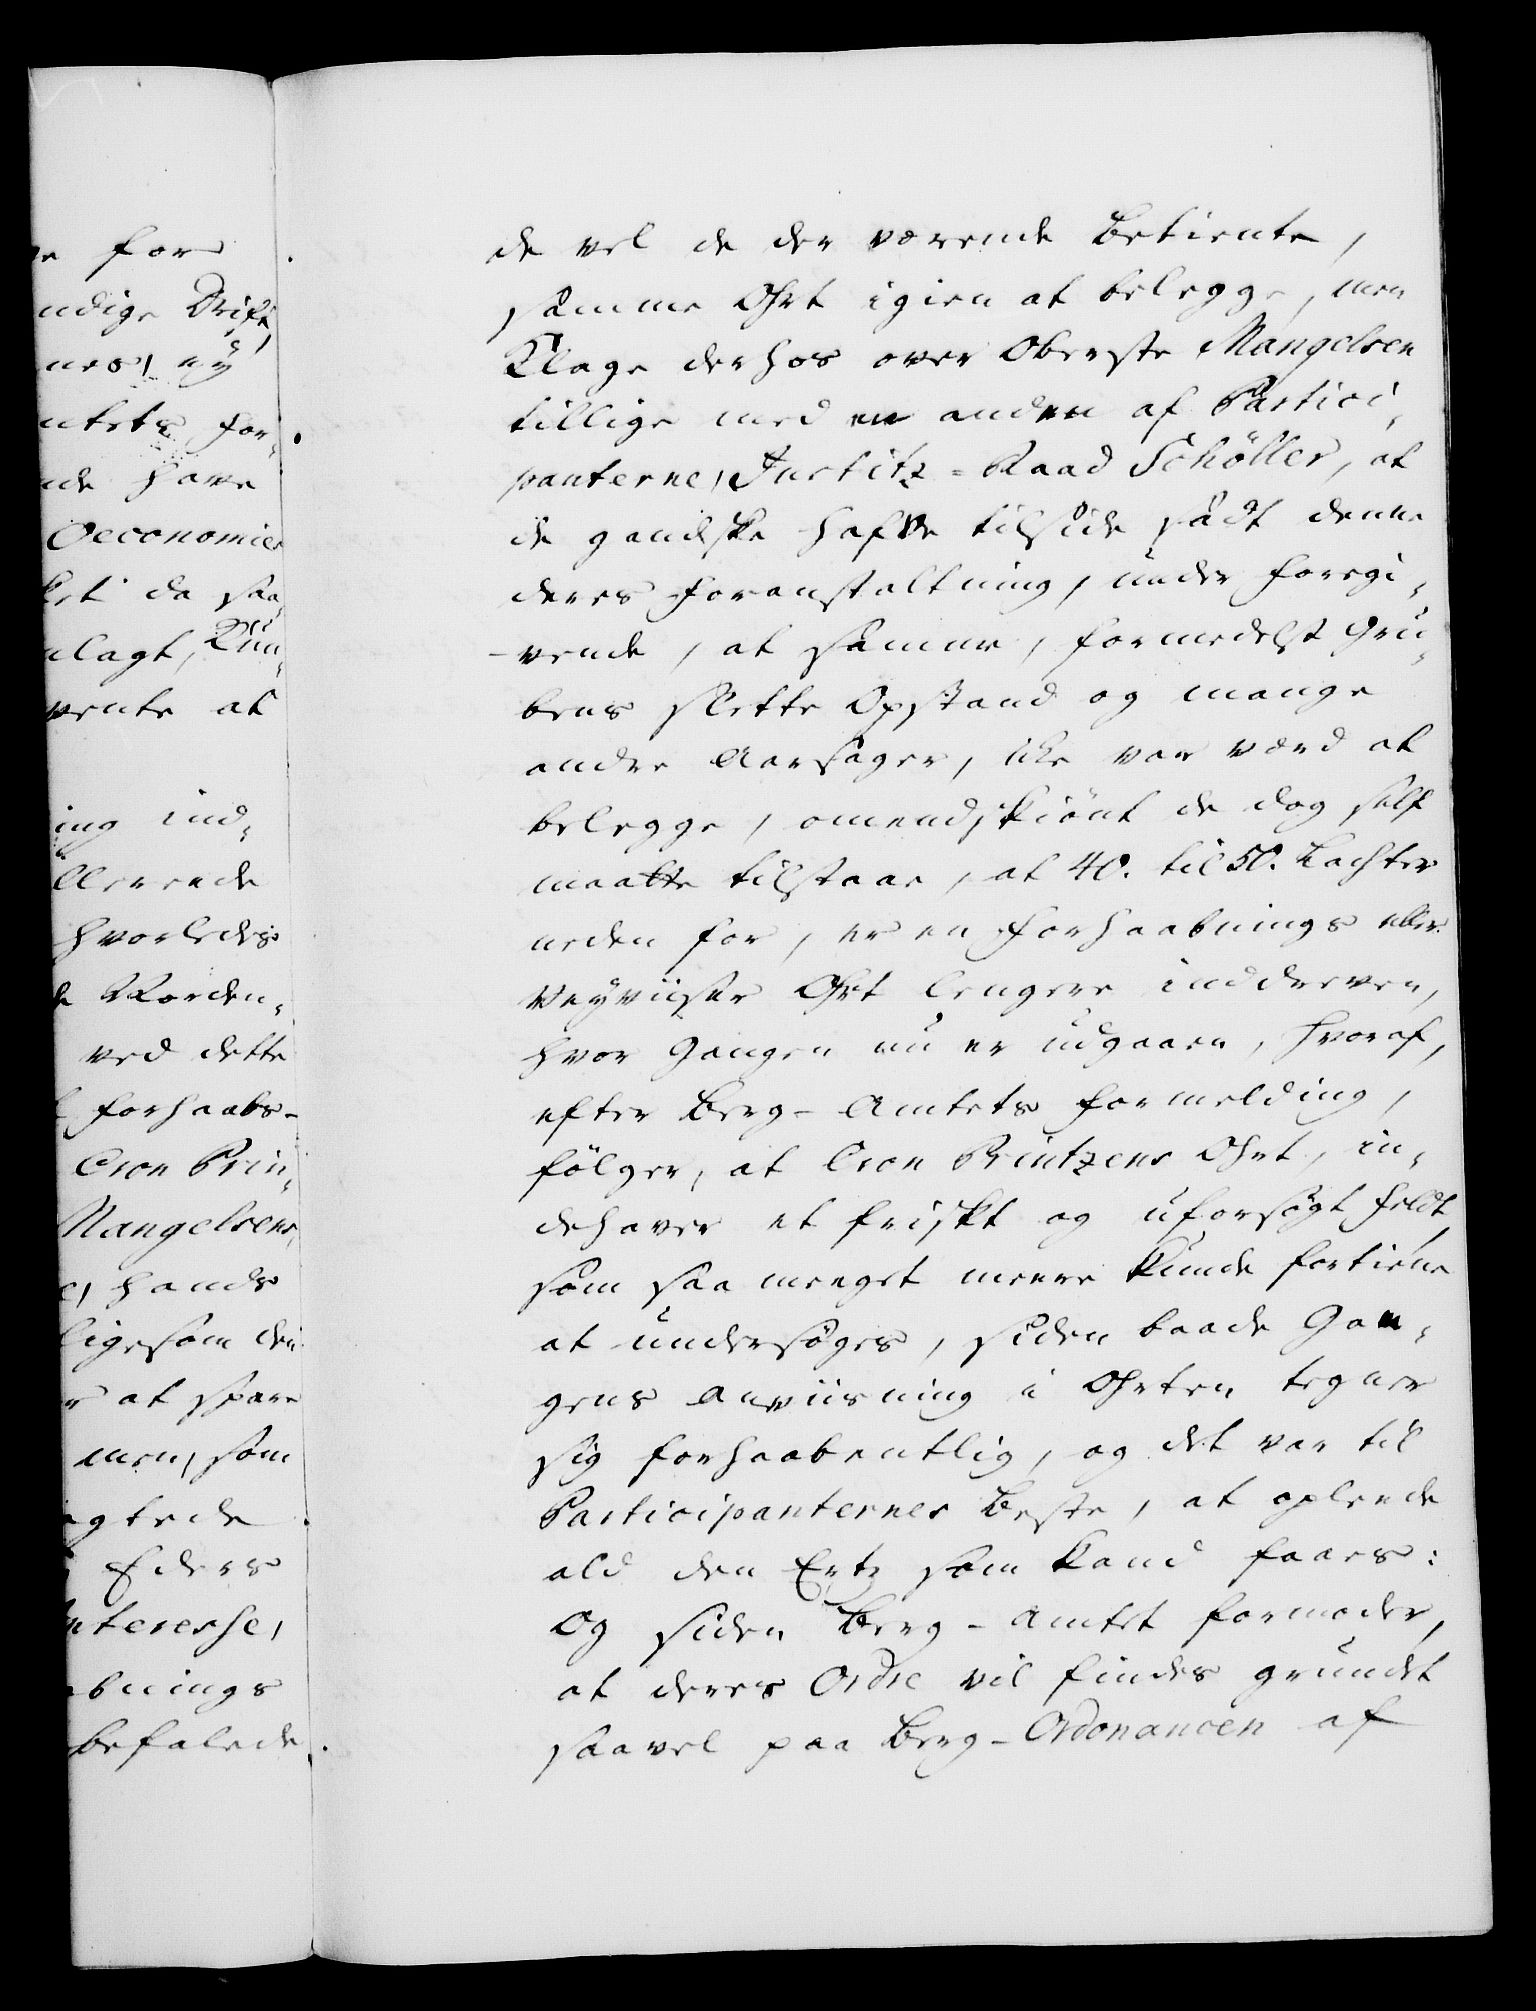 e for
ndige Drift,
nes, ny
ntets for-
nde have
Oeconomier
ket da saa-
nlagt, Kun-
vente at
ing ind-
llerede
hvorledes
Worden-
ved dette
forhaabs-
Cron Prin-
Mangelsens,
e, hands
ligesom den
r at spare
men, som
agtede
Eders
Interesse,
bnings
befalede.
de vel de der værende Betiente,
samme Ohrt igien at belegge, men
Klage derhos over Oberste Mangelsen
tillige med en anden af Partici-
panterne, Justitz-Raad Schöller, at
de gandske hafve tilside sadt denne
deres Foranstaltning, under Foregi-
vende, at samme, formedelst Gru-
bens slette Opstand og mange
andre Aarsager, icke var værd at
belegge, omendskiönt de dog self
maatte tilstaae, at 40. til 50. Lachter
neden for, er en Forhaabnings eller
Veyviiser Ohrt lengere inddreven,
hvor Gangen nu er udgaaen, hvoraf,
efter Berg-Amtets Formelding,
fölger, at Cron Printzens Ohrt, in-
dehaver et friskt og uforsögt Feldt,
som saa meeget meere kunde fortiene
at undersöges, siden baade Gan-
gens Anviisning i Ohrten tegner
sig forhaabentlig, og det var til
Participanternes Beste, at oplede
ald den Ertz som kand faaes:
Og siden Berg-Amtet formoder,
at deres Ordre vil findes grundet
saavel paa Berg-Ordonancen af